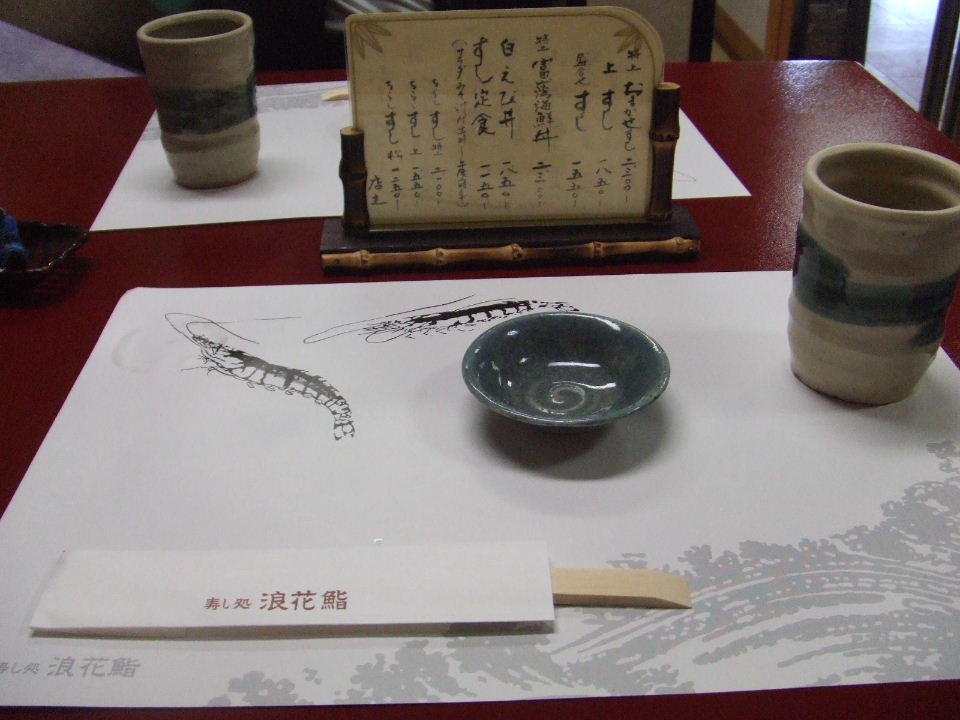 特上 おまかせずし 二、三〇〇-
上 すし 一、八五〇-
盛合せ すし 一、五五〇-
特上 富湾海鮮丼 二、三〇〇-
白えび丼 一、八五〇-
すし定食 一、一五〇-
ちらしずし 特上 二、一〇〇-
ちらしずし 上 一、五五〇-
ちらしずし 松 一、二五〇-
店主
寿し処 浪花鮨
寿し処 浪花鮨